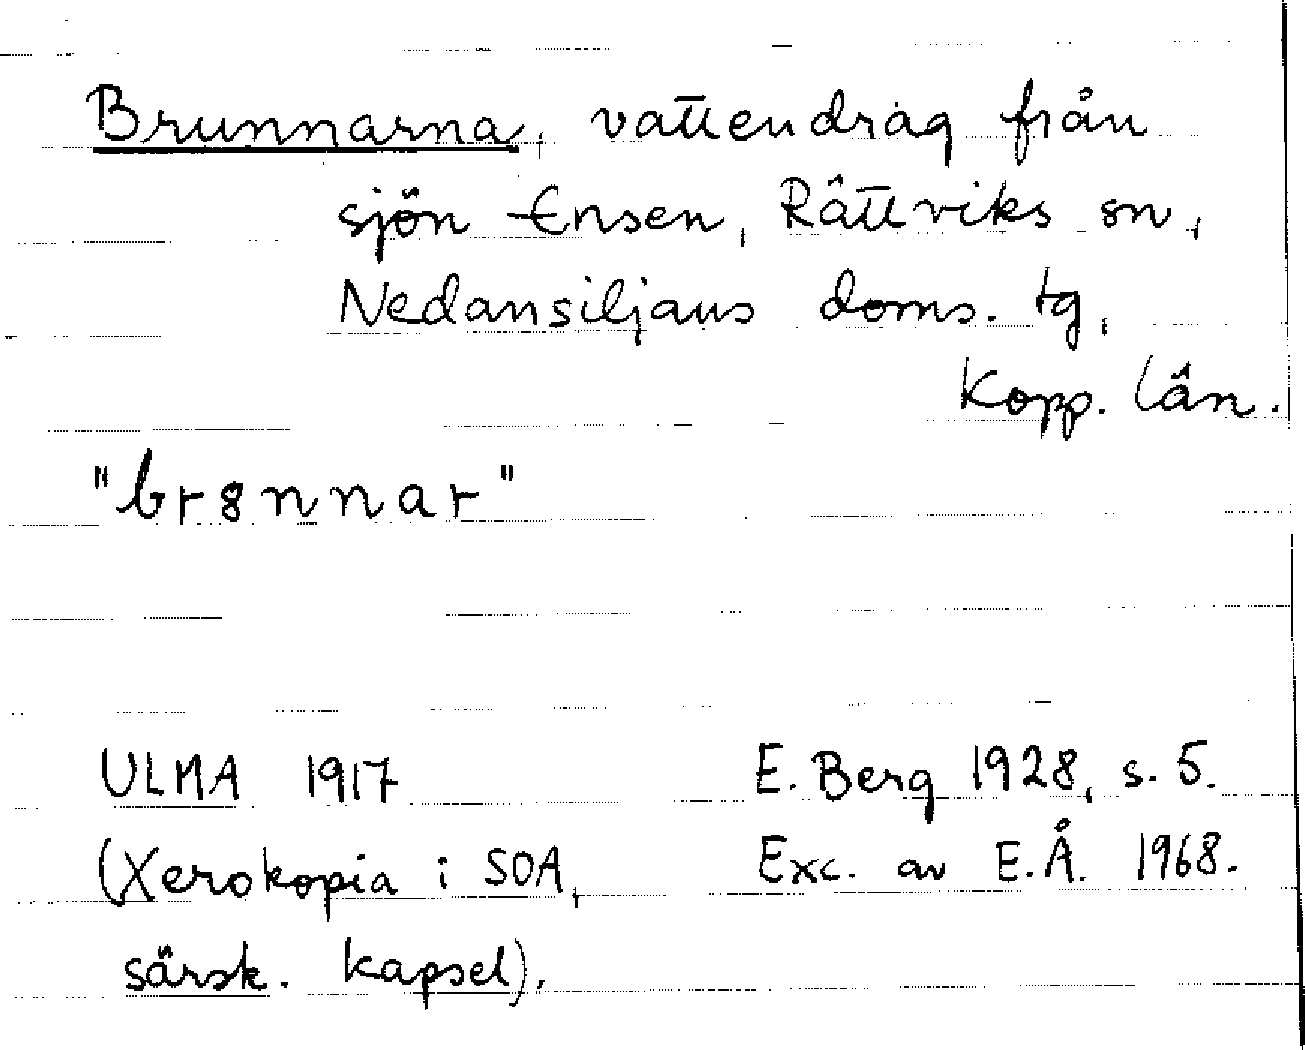 Brunnarna, vattendrag från
sjön Ensen, Rättviks sn,
Nedansiljans doms. tg,
Kopp. län.
"br8nnar"
ULMA 1917 E. Berg 1928, s. 5.
(Xerokopia i SOA, Exc. av E.Å. 1968.
särsk. kapsel).